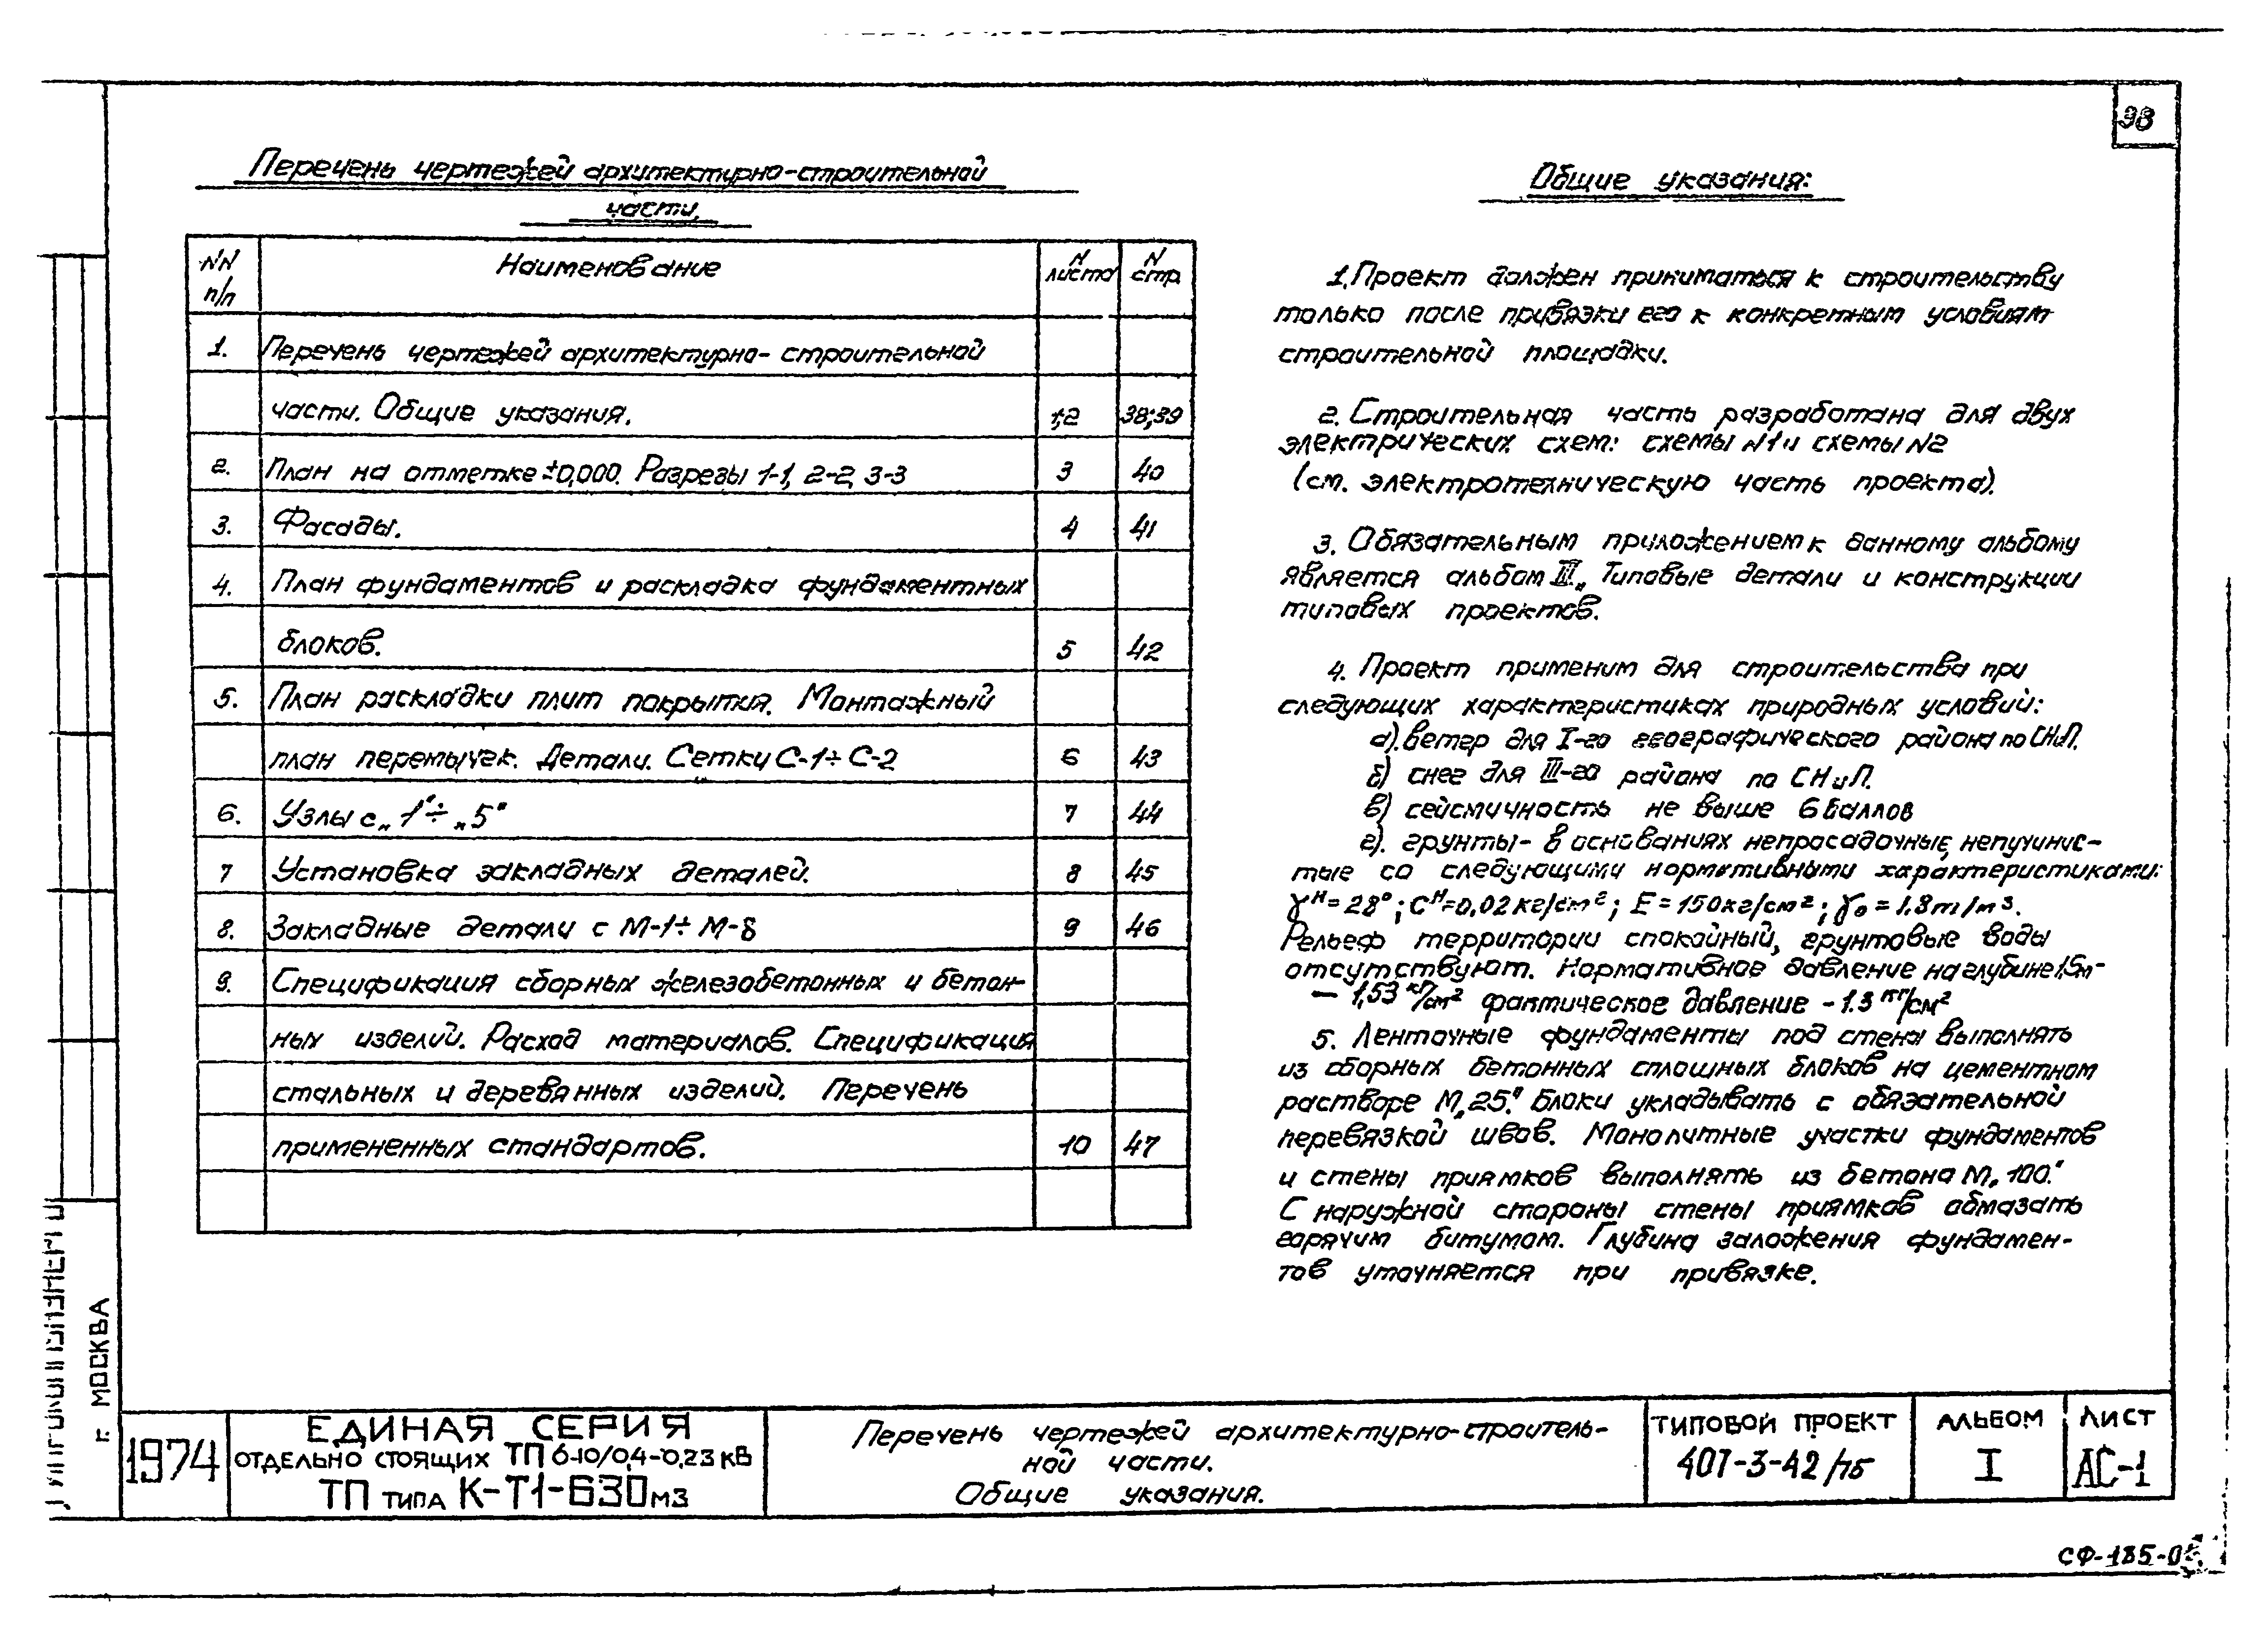 38
Перечень чертежей архитектурно-строительной
части.
NN п/п Наименование N листа N стр.
1. Перечень чертежей архитектурно-строительной
части. Общие указания. 1,2 38;39
2. План на отметке ±0,000. Разрезы 1-1, 2-2, 3-3 3 40
3. Фасады. 4 41
4. План фундаментов и раскладка фундаментных
блоков. 5 42
5. План раскладки плит покрытия. Монтажный
план перемычек. Детали. Сетки С-1÷С-2 6 43
6. Узлы с „1"÷„5" 7 44
7 Установка закладных деталей. 8 45
8. Закладные детали с М-1÷М-8 9 46
9. Спецификация сборных железобетонных и бетон-
ных изделий. Расход материалов. Спецификация
стальных и деревянных изделий. Перечень
примененных стандартов. 10 47
Общие указания:
1. Проект должен приниматься к строительству
только после привязки его к конкретным условиям
строительной площадки.
2. Строительная часть разработана для двух
электрических схем: схемы N1 и схемы N2
(см. электротехническую часть проекта).
3. Обязательным приложением к данному альбому
является альбом III „Типовые детали и конструкции
типовых проектов.
4. Проект применим для строительства при
следующих характеристиках природных условий:
а). ветер для I-го географического района по СНиП.
б) снег для III-го района по СНиП.
в) сейсмичность не выше 6 баллов
г). грунты- в основаниях непросадочные, непучинис-
тые со следующими нормативными характеристиками:
γᴴ=28°; Cᴴ=0,02 кг/см²; E=150кг/см²; γ₀=1.8т/м³.
Рельеф территории спокойный, грунтовые воды
отсутствуют. Нормативное давление на глубине 1,5м-
- 1,53 кг/см² фактическое давление - 1.3 кг/см²
5. Ленточные фундаменты под стены выполнять
из сборных бетонных сплошных блоков на цементном
растворе М„25". Блоки укладывать с обязательной
перевязкой швов. Монолитные участки фундаментов
и стены приямков выполнять из бетона М„100."
С наружной стороны стены приямков обмазать
горячим битумом. Глубина заложения фундамен-
тов уточняется при привязке.
г. МОСКВА
1974
ЕДИНАЯ СЕРИЯ
ОТДЕЛЬНО СТОЯЩИХ ТП 6-10/0,4-0,23 кВ
ТП ТИПА К-Т1-630 м3
Перечень чертежей архитектурно-строитель-
ной части.
Общие указания.
ТИПОВОЙ ПРОЕКТ
407-3-42/75
АЛЬБОМ
I
ЛИСТ
АС-1
СФ-185-0